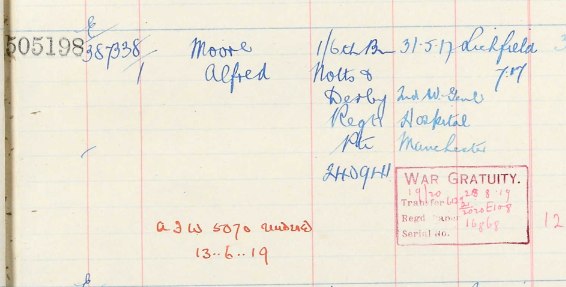 E
505198 387338/1 Moore 1/6th Bn 31.5.17 Lichfield 3
Alfred Notts & 7.17
Derby 2nd W. Genl
Regt Hospital
Pte Manchester
240911
WAR GRATUITY.
19/20 28 8 19
Transfer
Regd Paper
Serial No. 16868
12
A F W 5070
13..6..19